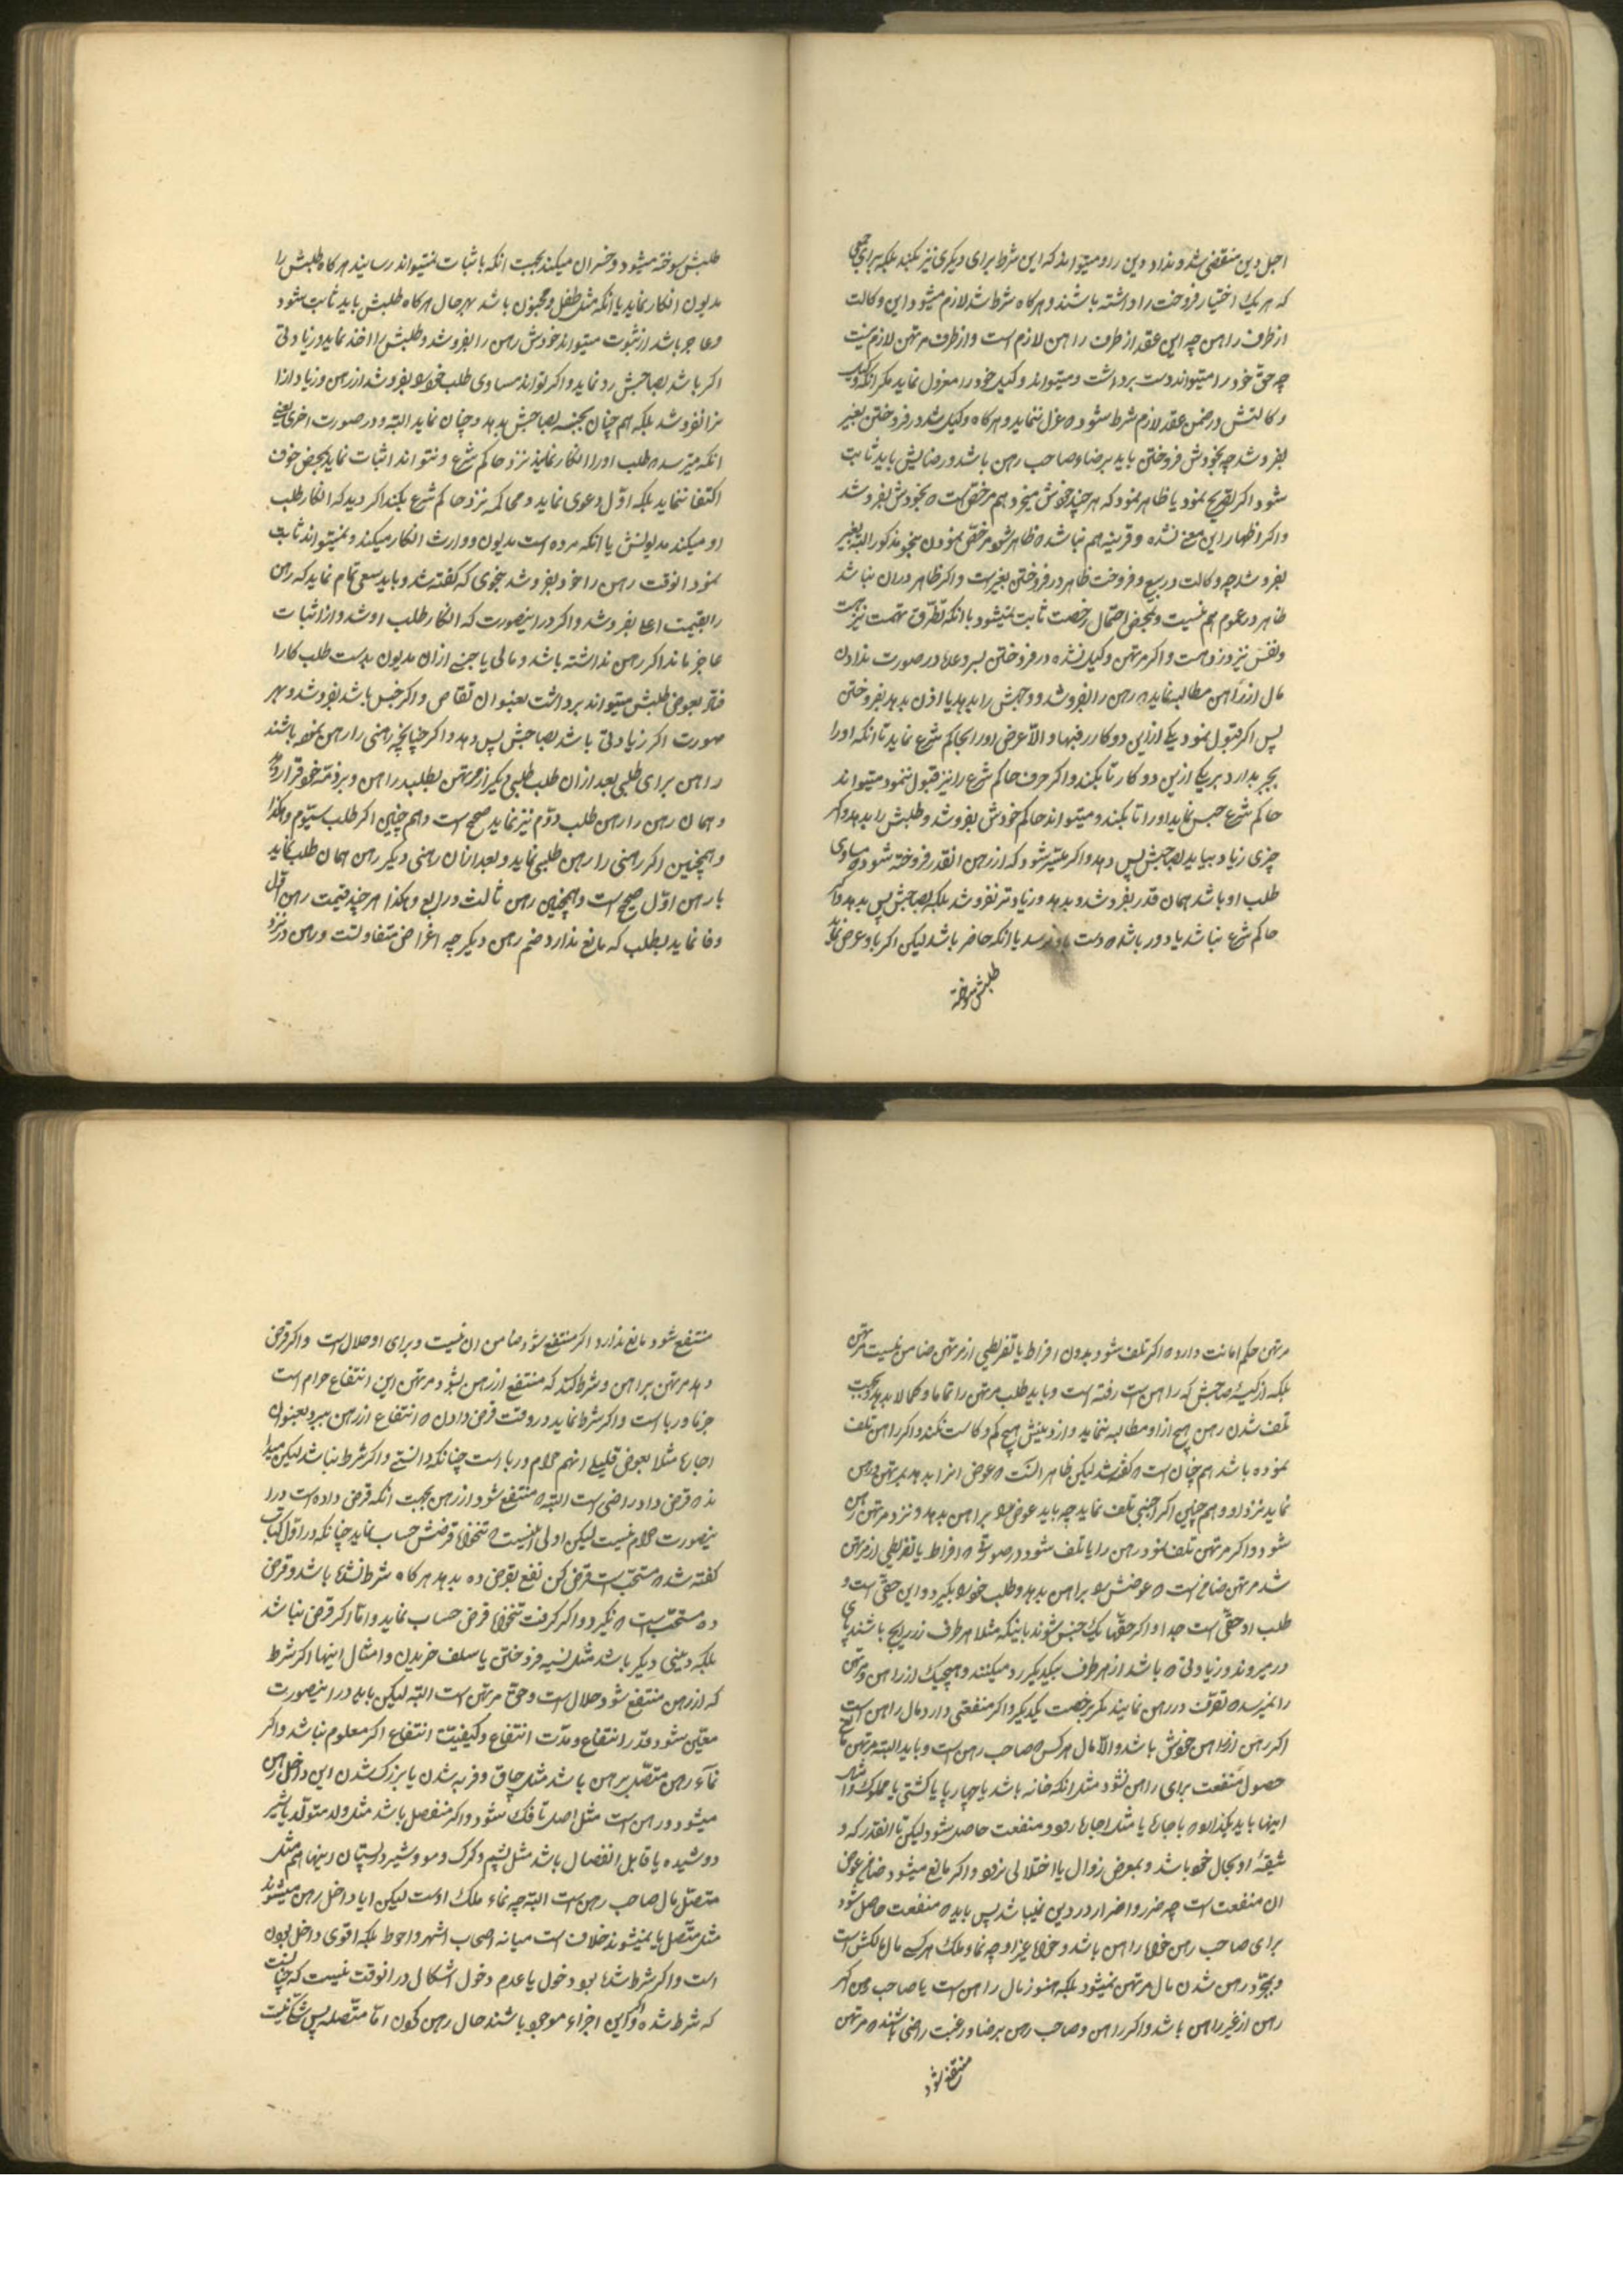 اجل دین منقضی شد و نداد دین را و میتواند که این شرط برای دیگری نیز بکند بلکه برای جمعی
که هر یک اختیار فروخت را داشته باشند و هرکاه شرط شد لازم میشود این وکالت
از طرف راهن چه این عقد از طرف راهن لازم است و از طرف مرتهن لازم نیست
چه حق خود را میتواند دست برداشت و میتواند وکیل خود را معزول نماید مکر آنکه
وکالتش در ضمن عقد لازم شرط شود که عزل ننماید و هرکاه وکیل شد در فروختن بغیر
بفروشد چه بخودش فروختن باید برضاء صاحب رهن باشد و رضایش باید ثابت
شود اکر تصریح نمود یا ظاهر نمود که هر چند خودش میخرد هم مرخص است که بخودش بفروشد
و اکر اظهار این معنی نشده و قرینه هم نباشد که ظاهر شود مرخص نمودن بنحو مذکور البته بغیر
بفروشد چه وکالت در بیع و فروخت ظاهر در فروختن بغیر است و اکر ظاهر در آن نباشد
ظاهر در عموم هم نیست و بمحض احتمال رخصت ثابت نمیشود با آنکه تطرق تهمت نیز هست
و نفس نیز دزد است و اکر مرتهن وکیل نشده در فروختن بسر وعده در صورت ندادن
مال از راهن مطالبه نماید که رهن را بفروشد و وجهش را بدهد یا اذن بدهد بفروختن
پس اکر قبول نمود یکی ازین دو کار را فبها و الا عرض او را بحاکم شرع نماید تا آنکه او را
بجبر بدارد بر یکی ازین دو کار تا بکند و اکر حرف حاکم شرع را نیز قبول ننمود میتواند
حاکم شرع حبس نماید او را تا بکند و میتواند حاکم خودش بفروشد و طلبش را بدهد و اکر
چیزی زیاد بیاید بصاحبش پس دهد و اکر میسر شود که از رهن آنقدر فروخته شود که مساوی
طلب او باشد همان قدر بفروشد و بدهد و زیادتر نفروشد بلکه بصاحبش پس بدهد و اکر
حاکم شرع نباشد یا دور باشد که دست باو نرسد یا آنکه حاضر باشد لیکن اکر باو عرض نماید
طلبش سوخته
طلبش سوخته میشود و خسران میکند بجهت آنکه باثبات نمیتواند رسانید هرکاه طلبش را
مدیون انکار نماید یا آنکه مثل طفل و مجنون باشد بهر حال هرکاه طلبش باید ثابت شود
و عاجز باشد از ثبوت میتواند خودش رهن را بفروشد و طلبش را اخذ نماید و زیادتی
اکر باشد بصاحبش رد نماید و اکر تواند مساوی طلب خود بفروشد از رهن و زیاد از آنرا
نفروشد بلکه هم چنان بجنسه بصاحبش بدهد و چنان نماید البته و در صورت اخری یعنی
آنکه میترسد که طلب او را انکار نمایند نزد حاکم شرع و نتواند اثبات نماید بمحض خوف
اکتفا ننماید بلکه اول دعوی نماید و محاکمه نزد حاکم شرع بکند اکر دید که انکار طلب
او میکند مدیونش یا آنکه مرده است مدیون و وارث انکار میکند و نمیتواند ثابت
نمود آنوقت رهن را خود بفروشد بنحوی که کفته شد و باید سعی تمام نماید که رهن
را بقیمت اعلا بفروشد و اکر در اینصورت که انکار طلب او شد و از اثبات
عاجز ماند اکر رهن نداشته باشد و مالی یا جنسی از آن مدیون بدست طلب کار
افتد بعوض طلبش میتواند برداشت بعنوان تقاص و اکر جنس باشد بفروشد و بهر
صورت اکر زیادتی باشد بصاحبش پس دهد و اکر چنانچه رهنی را رهن نموده باشند
راهن برای طلبی بعد از آن طلب طلبی دیگر از مرتهن بطلبد راهن و بر ذمه خود قرار دهد
و همان رهن را رهن طلب دوم نیز نماید صحیح است و هم چنین اکر طلب سیوم و هکذا
و همچنین اکر رهنی را رهن طلبی نماید و بعد از آن رهنی دیگر رهن همان طلب نماید
با رهن اول صحیح است و همچنین رهن ثالث و رابع و هکذا هر چند قیمت رهن اول
وفا نماید بطلب که مانع ندارد ضم رهن دیگر چه اغراض متفاوتست و رهن در نزد
مرتهن حکم امانت دارد که اکر تلف شود بدون افراط یا تفریطی از مرتهن ضامن نیست مرتهن
بلکه از کیسه صاحبش که راهن است رفته است و باید طلب مرتهن را تماما و کمالا بدهد و بجهت
تلف شدن رهن هیچ از او مطالبه ننماید و از دینش هیچ کم و کاست نکند و اکر راهن تلف
نموده باشد هم چنان است که کفته شد لیکن ظاهر آنست که عوض آنرا بدهد بمرتهن و رهن
نماید نزد او و هم چنین اکر اجنبی تلف نماید چه باید عوض را براهن بدهد و نزد مرتهن رهن
شود و اکر مرتهن تلف نمود رهن را یا تلف شود در صورتی که افراط یا تفریطی از مرتهن
شد مرتهن ضامن است که عوضش را براهن بدهد و طلب خود بگیرد و این حقی است و
طلب او حقی است جدا و اکر حقها یک جنس شوند باینکه مثلا هر طرف زر رایج باشند پای
در میروند و زیادتی که باشد از هر طرف بیکدیگر رد میکنند و هیچیک از راهن و مرتهن
را نمیرسد که تصرف در رهن نمایند مکر برخصت یکدیگر و اکر منفعتی دارد مال راهن است
اکر رهن از راهن خودش باشد و الا مال هر کس که صاحب رهن است و باید البته مرتهن مانع
حصول منفعت برای راهن نشود مثل آنکه خانه باشد یا چهارپا یا کشتی یا مملوک و امثال
اینها باید بکذارد که باجاره یا مثل اجاره رود و منفعت حاصل شود لیکن تا آنقدر که و
ثیقهٔ او بحال خود باشد و بمعرض زوال یا اختلالی نرود و اکر مانع میشود ضامن عوض
آن منفعت است چه ضرر و اضرار در دین نمیباشد پس باید که منفعت حاصل شود
برای صاحب رهن خواه راهن باشد و خواه غیر او چه نماء ملک هر کس مال مالکش است
و بمجرد رهن شدن مال مرتهن نمیشود بلکه هنوز مال راهن است یا صاحب رهن اکر
رهن از غیر راهن باشد و اکر راهن و صاحب رهن برضا و رغبت راضی باشند که مرتهن
منتفع شود
منتفع شود مانع ندارد اکر منتفع شود ضامن آن نیست و برای او حلال است و اکر قرض
دهد مرتهن براهن و شرط کند که منتفع از رهن بشود مرتهن این انتفاع حرام است
جزما و ربا است و اکر شرط نماید در وقت قرض دادن که انتفاع از رهن ببرد بعنوان
اجاره مثلا بعوض قلیلی آنهم حرام و ربا است چنانکه دانستی و اکر شرط نباشد لیکن میدا
ند که قرض دار راضی است البته که منتفع شود از رهن بجهت آنکه قرض داده است در ا
ینصورت حرام نیست لیکن اولی آنست که تنخواه قرضش حساب نماید چنانکه در اول کتاب
کفته شد که مستحب است قرض کن نفع بقرض ده بدهد هرکاه شرط نشده باشد و قرض
ده مستحب است که نگیرد و اکر کرفت تنخواه قرض حساب نماید و اما اکر قرض نباشد
بلکه دینی دیگر باشد مثل نسیه فروختن یا سلف خریدن و امثال اینها اکر شرط
که از رهن منتفع شود حلال است و حق مرتهن است البته لیکن باید در اینصورت
معین شود قدر انتفاع و مدت انتفاع و کیفیت انتفاع اکر معلوم نباشد و اکر
نماء رهن متصل برهن باشد مثل چاق و فربه شدن یا بزرک شدن این داخل رهن
میشود و رهن است مثل اصل تا فک شود و اکر منفصل باشد مثل ولد متولد یا شیر
دوشیده یا قابل انفصال باشد مثل پشم و کرک و مو و شیر در پستان اینها هم مثل
متصل مال صاحب رهن است البته چه نماء ملک اوست لیکن آیا داخل رهن میشوند
مثل متصل یا نمیشوند خلاف است میانه اصحاب اشهر و احوط بلکه اقوی داخل بودن
است و اکر شرط شده بود دخول یا عدم دخول اشکال در آنوقت نیست که چنانست
که شرط شده و اکر این اجزاء موجود باشند حال رهن کردن اما متصله پس شکی نیست